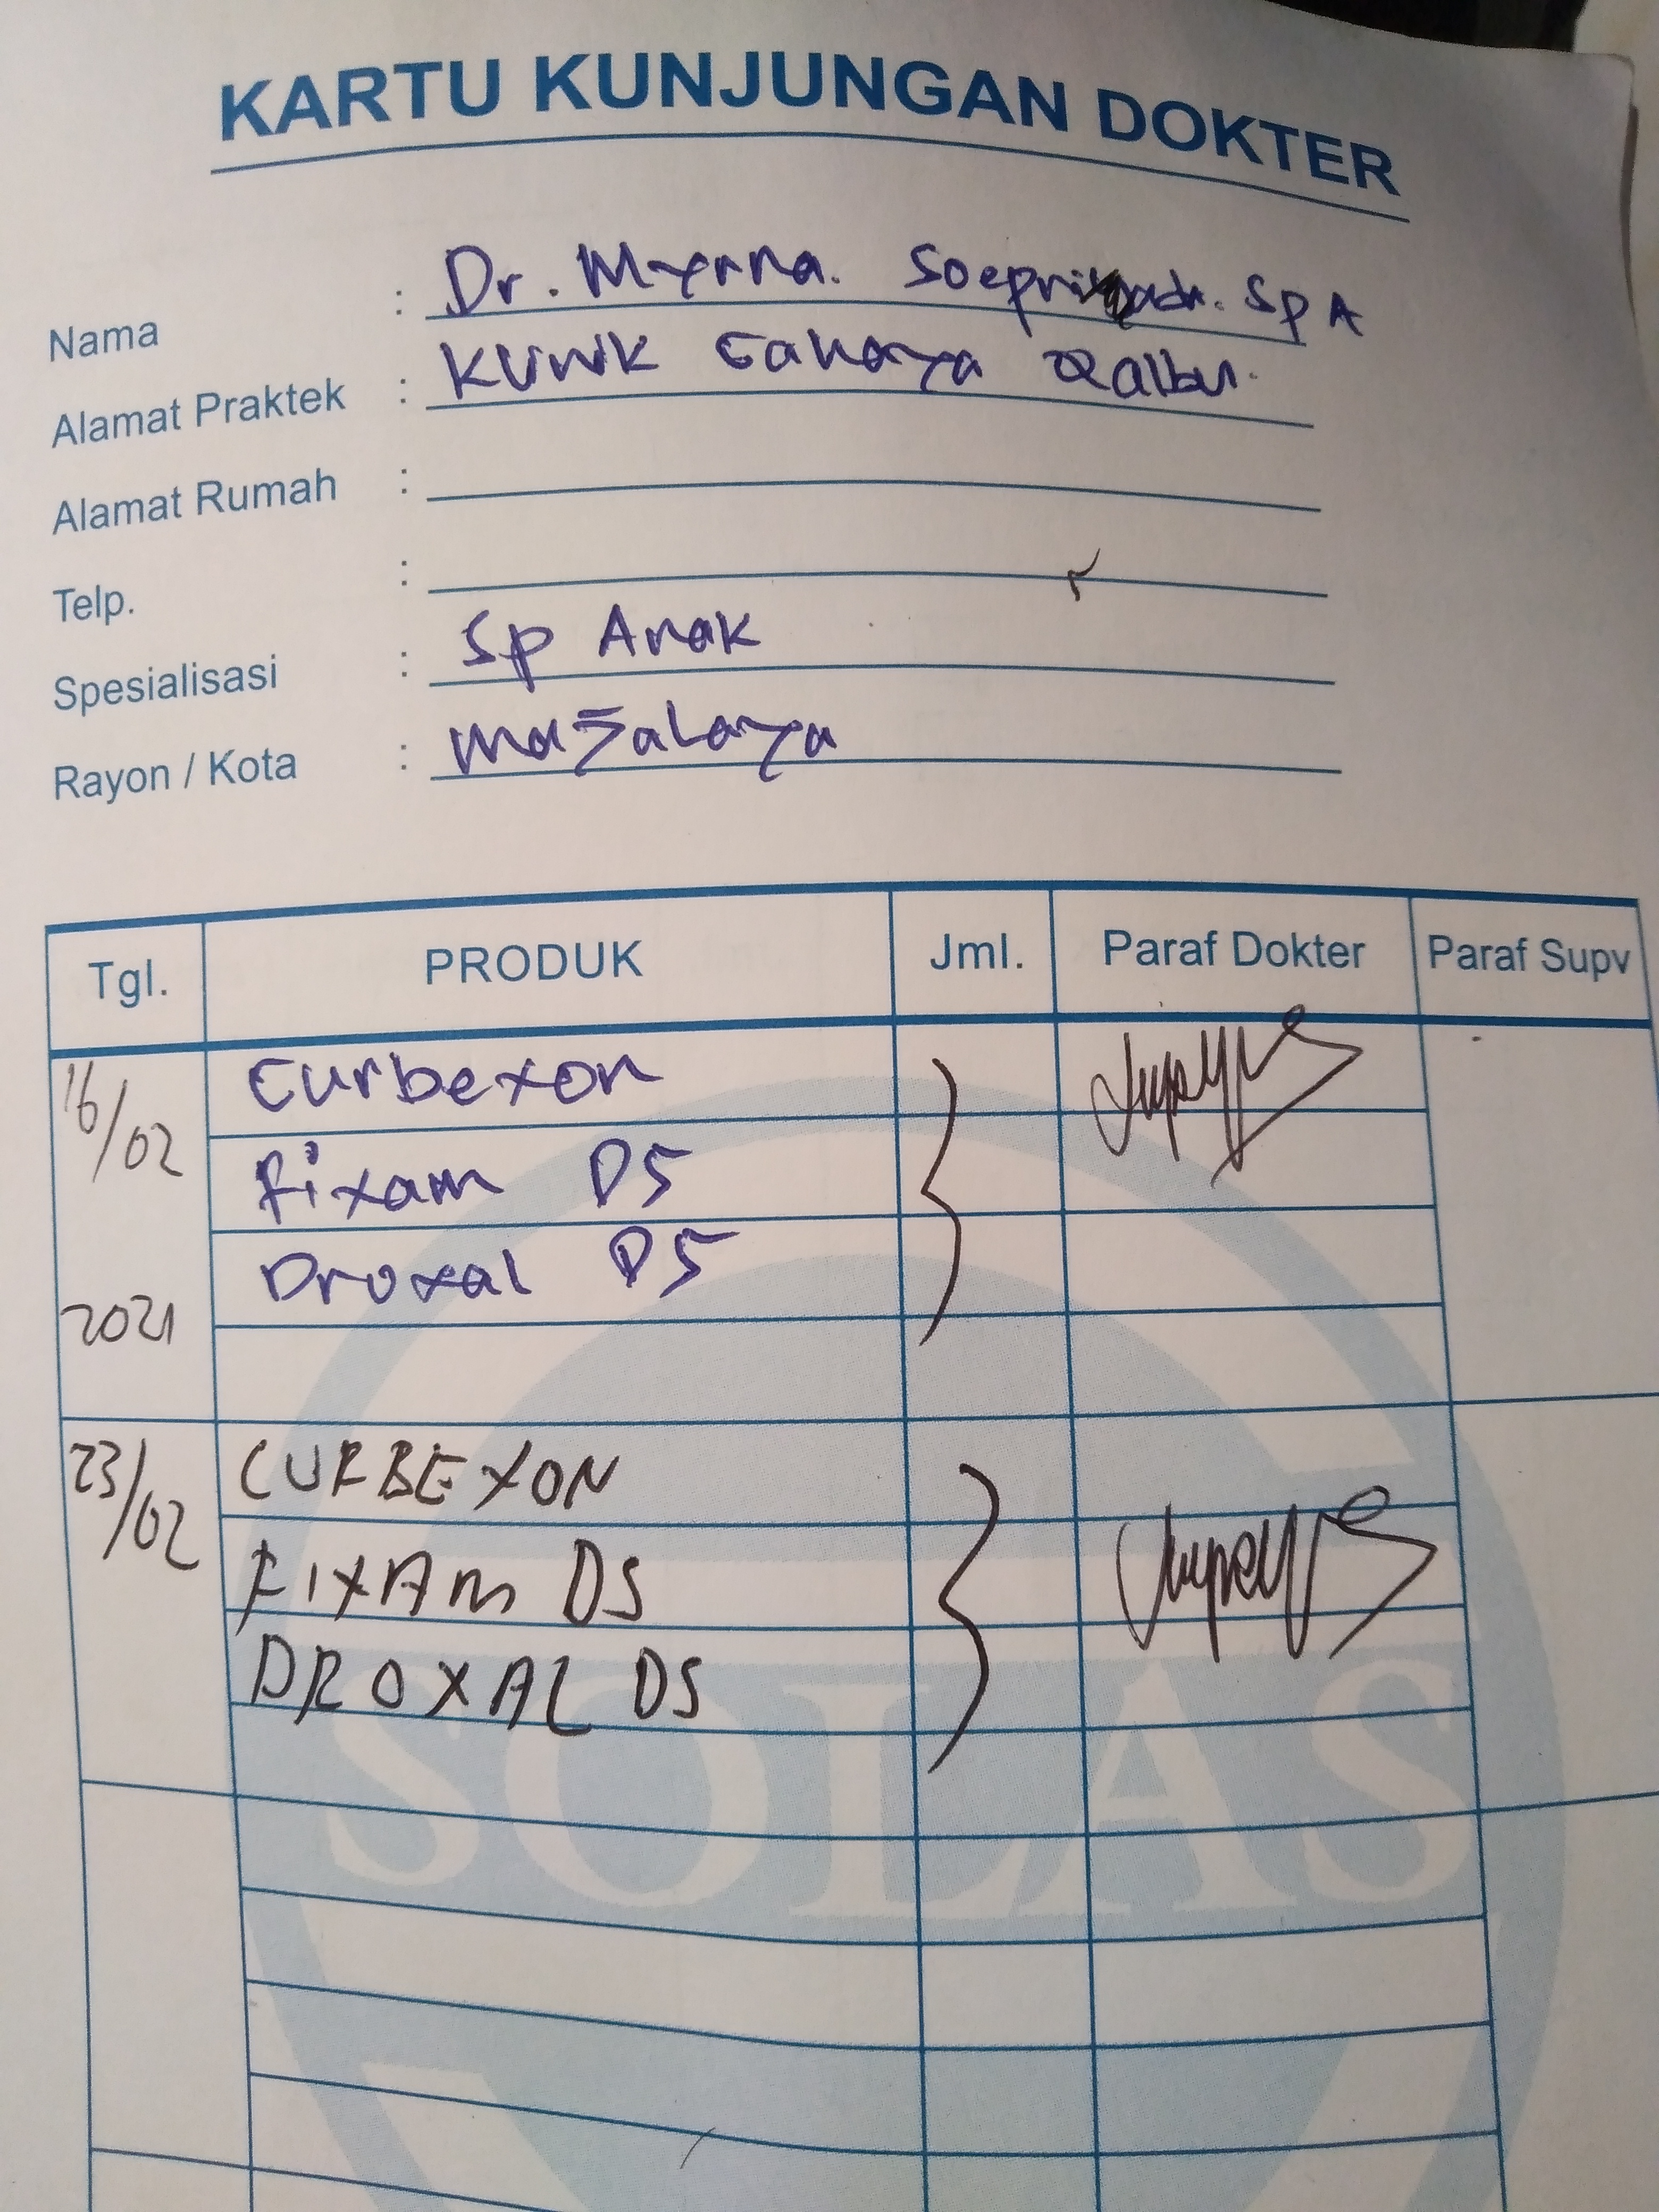 KARTU KUNJUNGAN DOKTER
Nama : Dr. Myrna. Sp A
Alamat Praktek : Klinik Cahaya Qalbu.
Alamat Rumah :
Telp. :
Spesialisasi : Sp Anak
Rayon / Kota : Majalaya
Tgl. PRODUK Jml. Paraf Dokter Paraf Supv
16/02 Curbexon
Fixam DS
2021 Droxal DS
23/02 CURBEXON
FIXAM DS
DROXAL DS
SOLAS